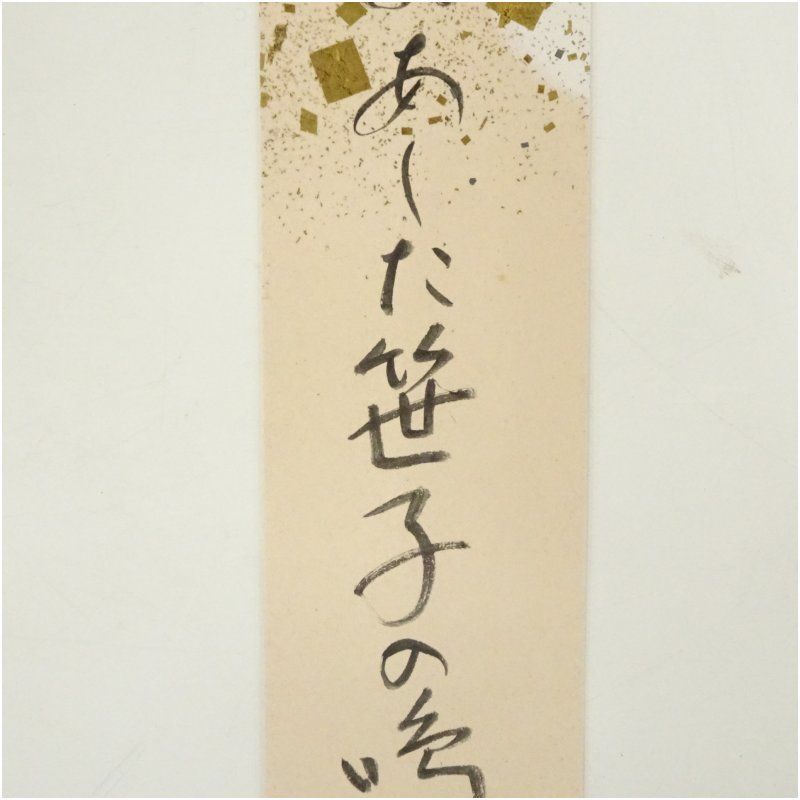 あした笹子の鳴